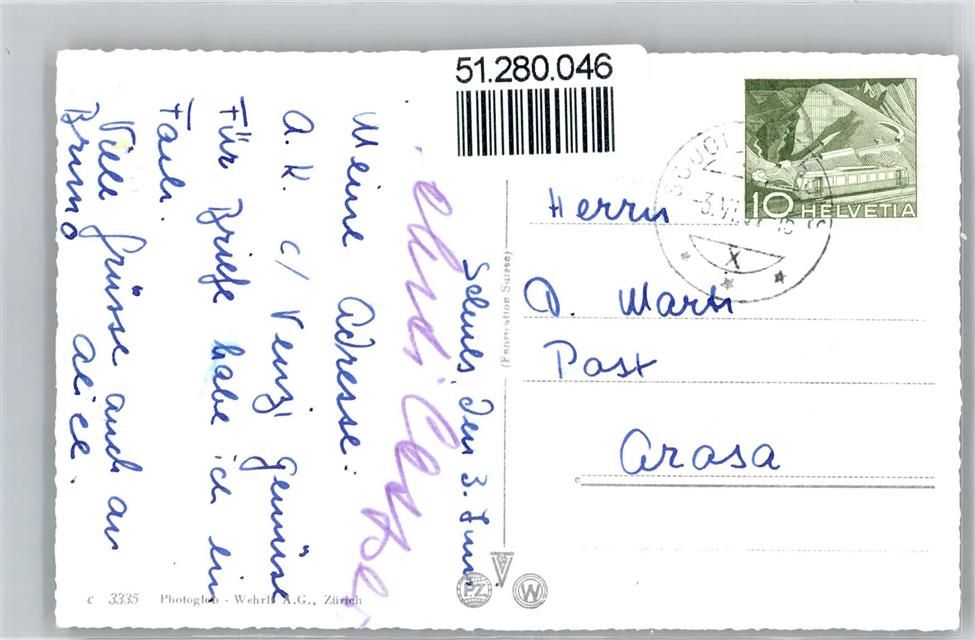 51.280.046
Schuls, den 3. Juni
Meine Adresse:
A. K. c/ Venzi Gemüse
Für Briefe habe ich ein
Fach.
Viele Grüsse auch an
Bruno
Alice.
HELVETIA
10
Herrn
P. Marti
Post
Arosa
(Fabrication Suisse)
PZ
W
c 3335 Photoglob - Wehrli A.G., Zürich